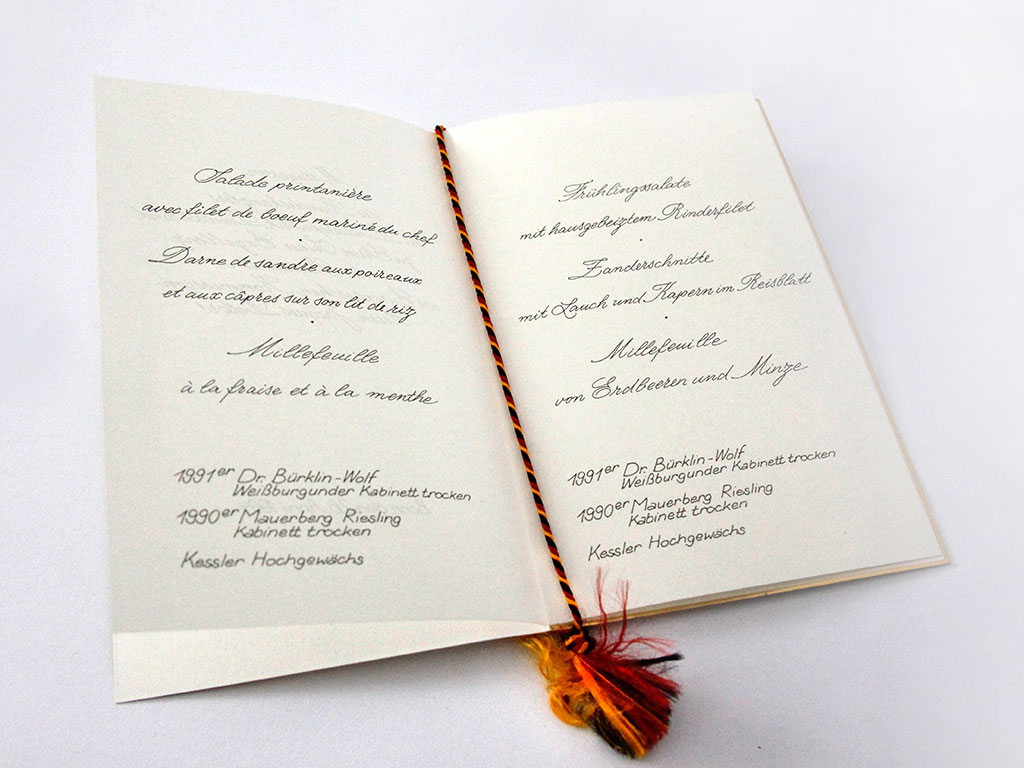 Salade printanière
avec filet de boeuf mariné du chef
Darne de sandre aux poireaux
et aux câpres sur son lit de riz
·
Millefeuille
à la fraise et à la menthe
1991er Dr. Bürklin-Wolf
Weißburgunder Kabinett trocken
1990er Mauerberg Riesling
Kabinett trocken
Kessler Hochgewächs
Frühlingssalate
mit hausgebeiztem Rinderfilet
·
Zanderschnitte
mit Lauch und Kapern im Reisblatt
·
Millefeuille
von Erdbeeren und Minze
1991er Dr. Bürklin-Wolf
Weißburgunder Kabinett trocken
1990er Mauerberg Riesling
Kabinett trocken
Kessler Hochgewächs